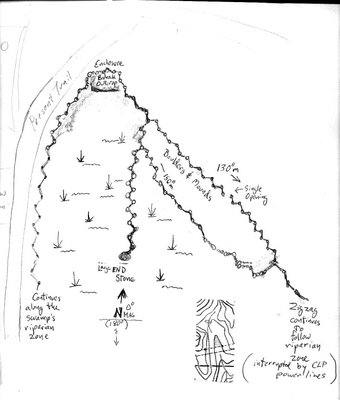 Enclosure
Bedrock
Outcrop
Present Trail
Boulders & Mounds
130°m
← Single
Opening
Large END
Stone
N 0° MAG
(180°)
S
Continues
along the
swamp's
riperian
zone
Zigzag
continues
to
follow
riperian
zone
(interrupted by CLP
power lines)